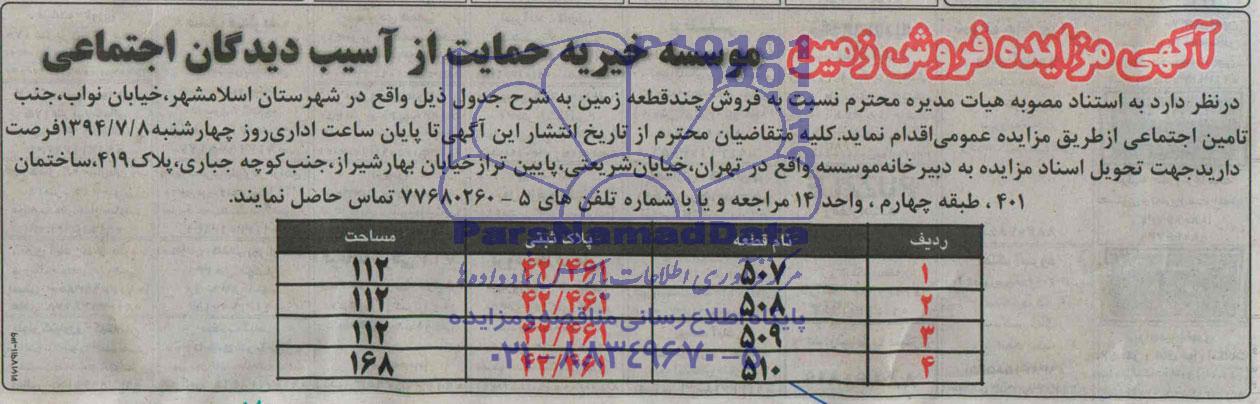 آگهی مزایده فروش زمین موسسه خیریه حمایت از آسیب دیدگان اجتماعی
درنظر دارد به استناد مصوبه هیات مدیره محترم نسبت به فروش چندقطعه زمین به شرح جدول ذیل واقع در شهرستان اسلامشهر،خیابان نواب،جنب
تامین اجتماعی ازطریق مزایده عمومی‌اقدام نماید.کلیه متقاضیان محترم از تاریخ انتشار این آگهی‌تا پایان ساعت اداری‌روز چهارشنبه۱۳۹۴/۷/۸فرصت
داریدجهت تحویل اسناد مزایده به دبیرخانه‌موسسه واقع در تهران،خیابان‌شریعتی،پایین ترازخیابان بهارشیراز،جنب‌کوچه جباری،پلاک۴۱۹،ساختمان
۴۰۱ ، طبقه چهارم ، واحد ۱۴ مراجعه و یا با شماره تلفن های ۵ - ۷۷۶۸۰۲۶۰ تماس حاصل نمایند.
ردیف نام قطعه پلاک ثبتی مساحت
۱ ۵۰۷ ۴۲/۴۶۱ ۱۱۲
۲ ۵۰۸ ۴۲/۴۶۱ ۱۱۲
۳ ۵۰۹ ۴۲/۴۶۱ ۱۱۲
۴ ۵۱۰ ۴۲/۴۶۱ ۱۶۸
ParsNamadData
پایگاه اطلاع رسانی مناقصه و مزایده
۰۲۱-۸۸۳۴۹۶۷۰-۵